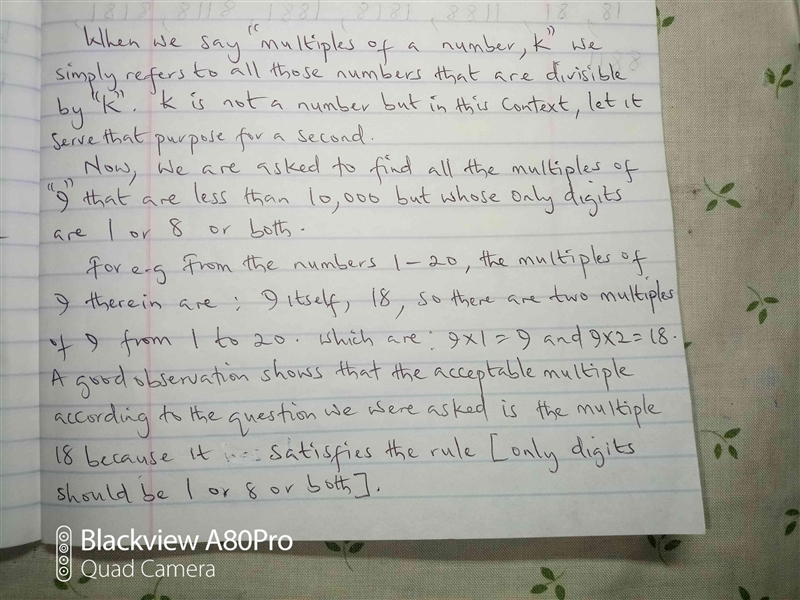 When we say "multiples of a number, K" we
simply refers to all those numbers that are divisible
by "K". K is not a number but in this context, let it
serve that purpose for a second.
Now, we are asked to find all the multiples of
"9" that are less than 10,000 but whose only digits
are 1 or 8 or both.
For e.g From the numbers 1-20, the multiples of
9 therein are: 9 itself, 18, so there are two multiples
of 9 from 1 to 20. which are: 9x1=9 and 9x2=18.
A good observation shows that the acceptable multiple
according to the question we were asked is the multiple
18 because it ... satisfies the rule [only digits
should be 1 or 8 or both].
Blackview A80Pro
Quad Camera